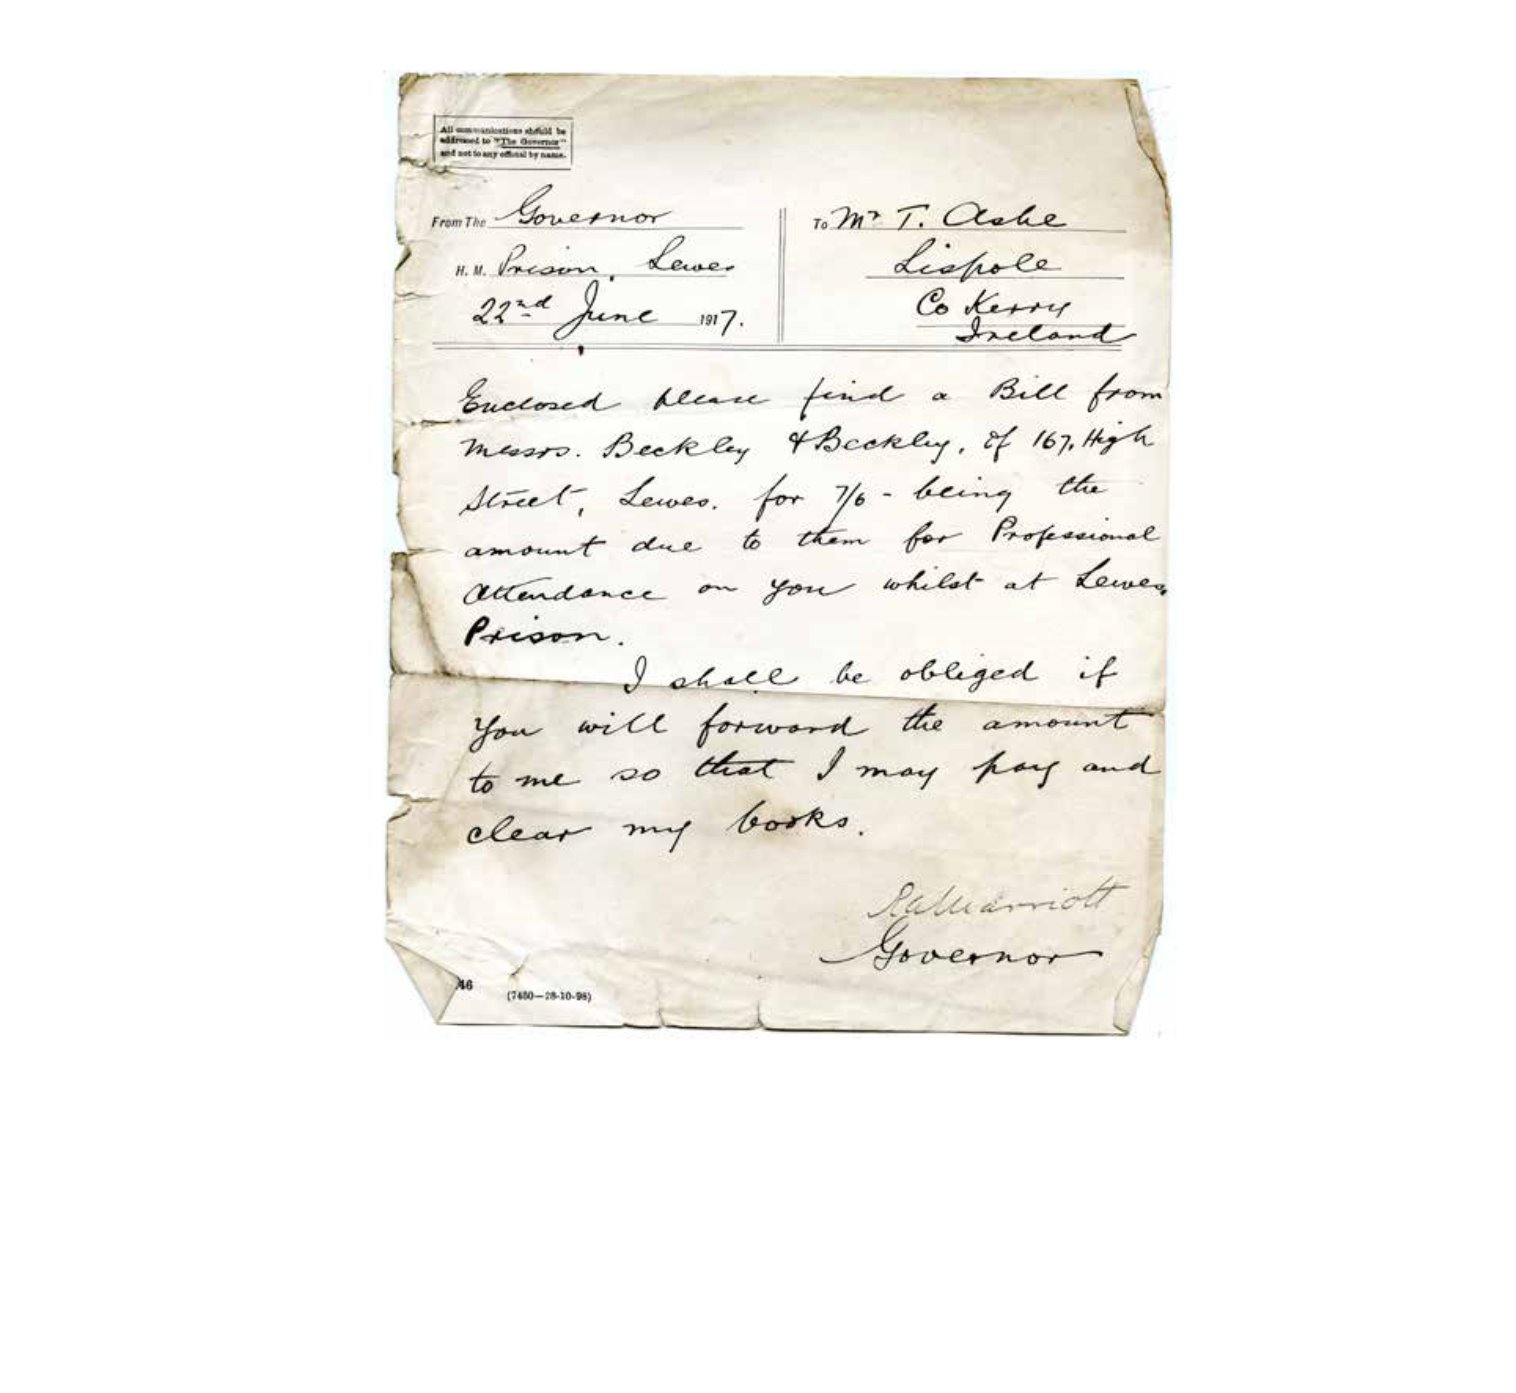 All communications should be
addressed to "The Governor"
and not to any official by name.
From The Governor
H. M. Prison, Lewes
22nd June 1917.
To Mr T. Ashe
Lispole
Co Kerry
Ireland
Enclosed please find a Bill from
Messrs. Beckley & Beckley, of 167, High
Street, Lewes. for 7/6 - being the
amount due to them for Professional
Attendance on you whilst at Lewes
Prison.
I shall be obliged if
you will forward the amount
to me so that I may pay and
clear my books.
RAMarriott
Governor
46
(7450—28-10-98)